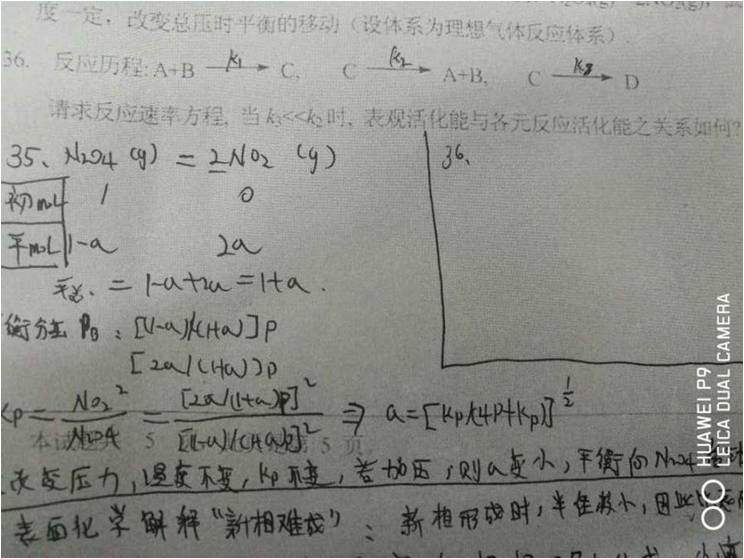 度一定，改变总压时平衡的移动（设体系为理想气体反应体系）
36. 反应历程: A+B —k1→ C, C —k2→ A+B, C —k3→ D
请求反应速率方程, 当 k3<<k2 时, 表观活化能与各元反应活化能之关系如何?
35、N2O4 (g) = 2NO2 (g)
36、
初mol 1 0
平mol 1-a 2a
平总. = 1-a+2a=1+a.
衡分压 PB : [(1-a)/(1+a)]P
[2a/(1+a)]P
Kp = NO2² / N2O4 = [2a/(1+a)P]² / [(1-a)/(1+a)P]² ⇒ a=[Kp/(4P+Kp)]^1/2
本试 5 第 5 页
改变压力, 温度不变, Kp 不变, 若加压, 则a变小, 平衡向N2O4
表面化学解释“新相难成”: 新相形成时, 半径极小, 因此
HUAWEI P9
LEICA DUAL CAMERA